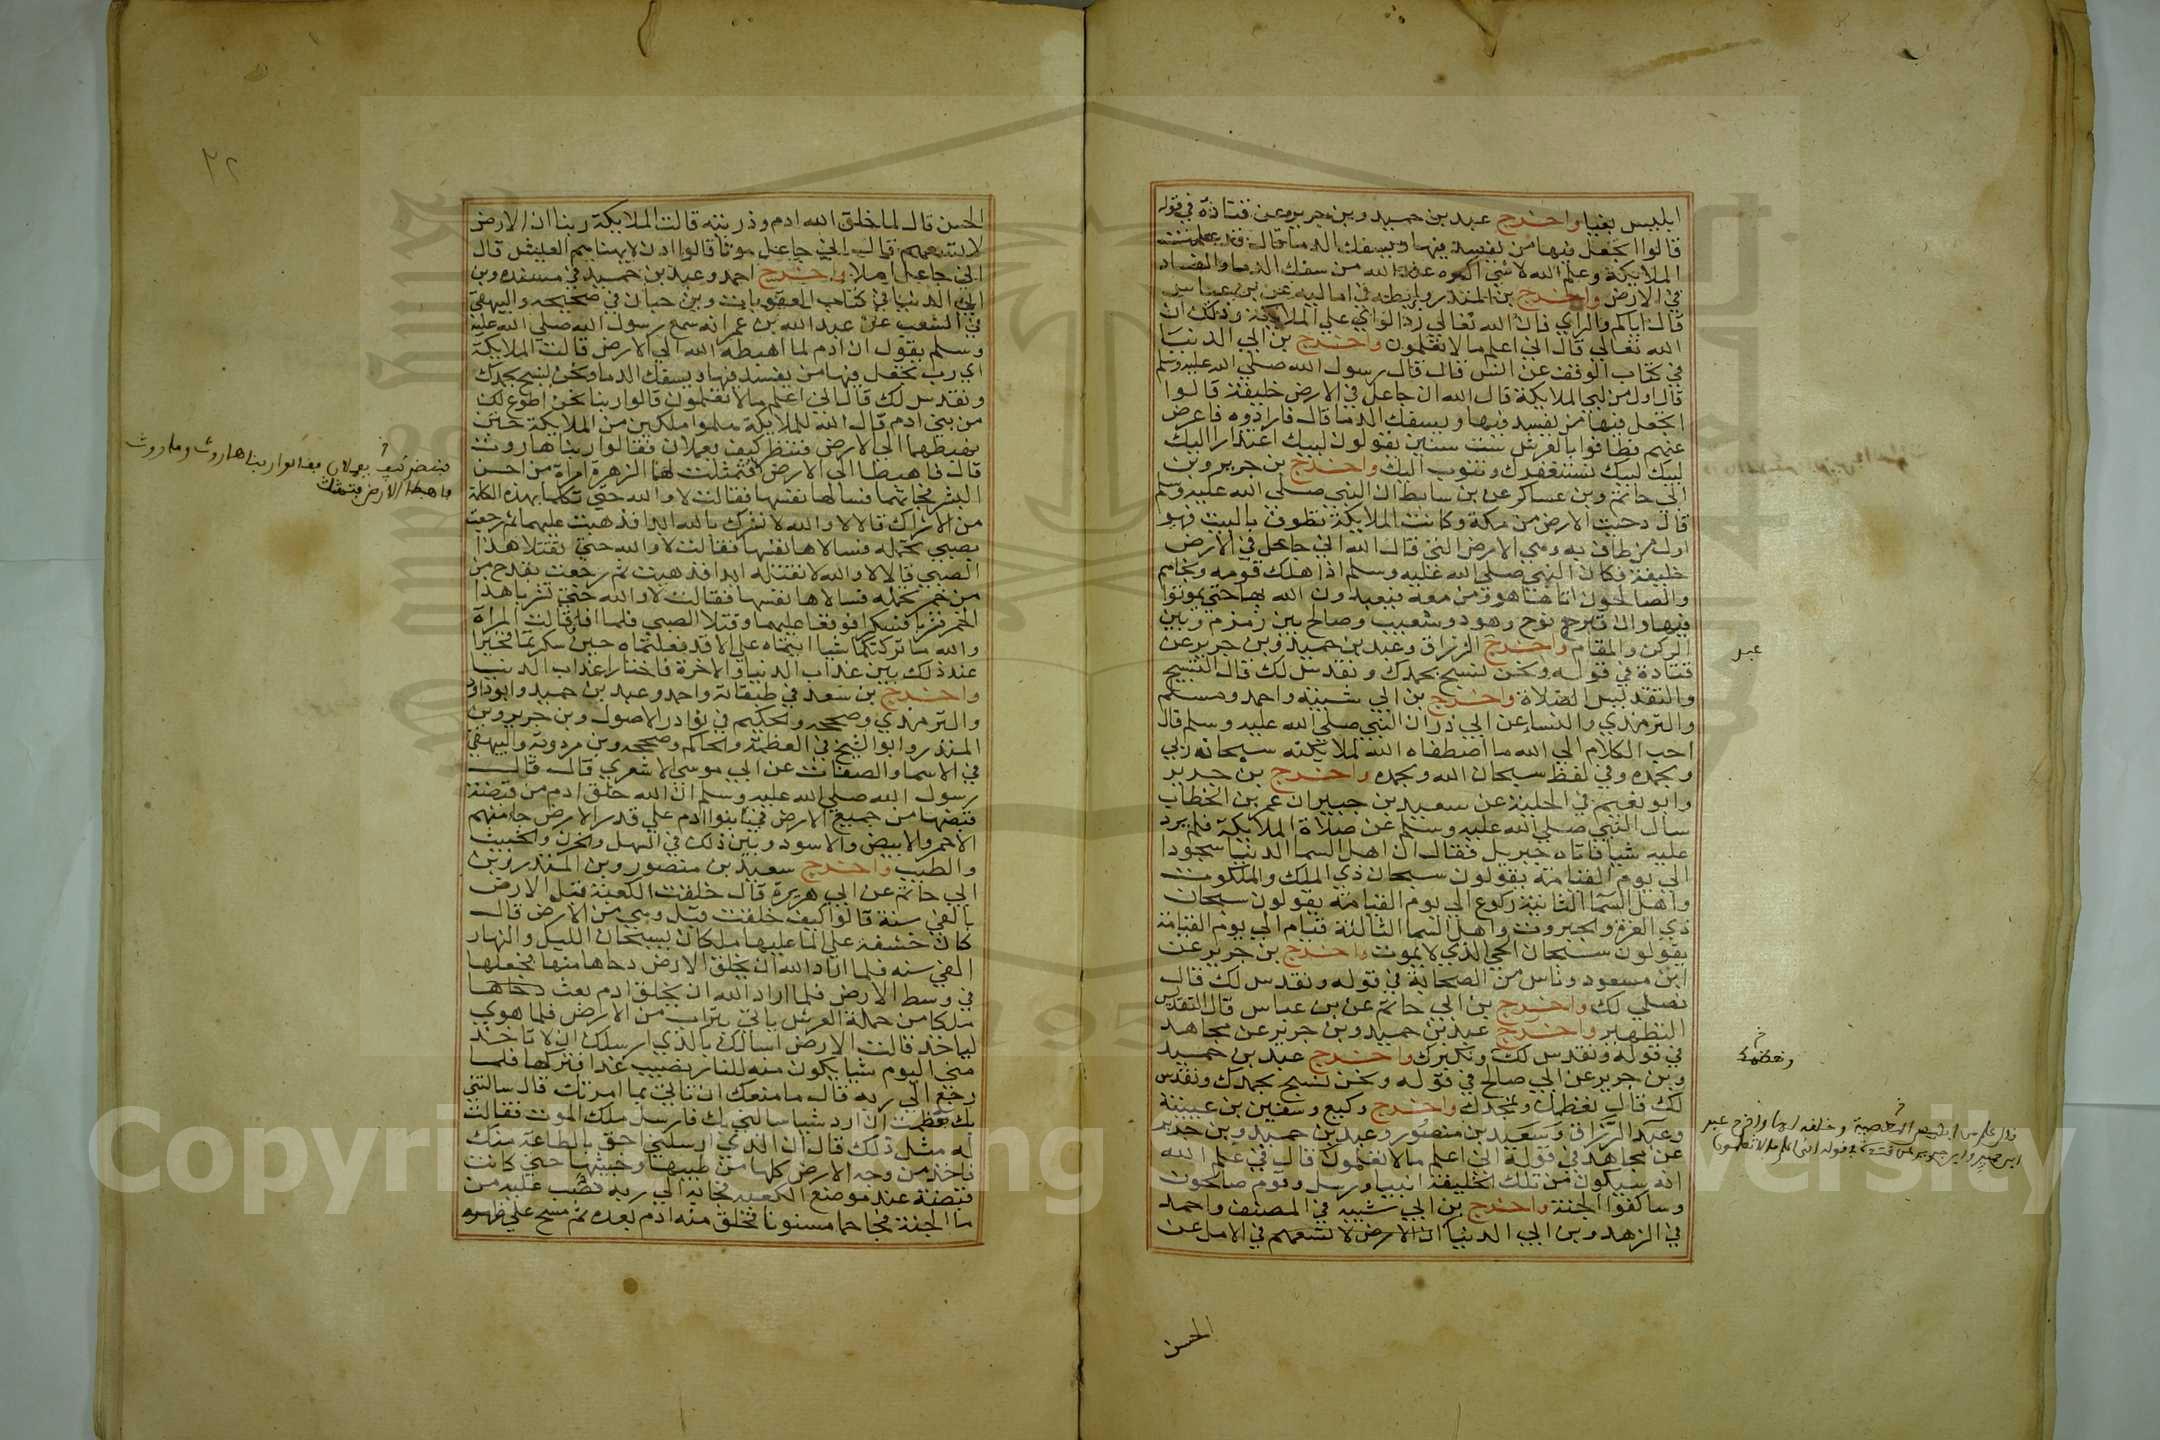 ابليس بغيا واخرج عبد بن حميد وبن جرير عن قتادة في قوله
قالوا اتجعل فيها من يفسد فيها ويسفك الدما قال قد علمت
الملايكة وعلم الله لاشي اكره عند الله من سفك الدما والفساد
في الارض واخرج بن المنذر وبن بطه في اماليه عن بن عباس
قال اياكم والراي فان الله تعالي رد الراي علي الملايكة وذلك ان
الله تعالي قال اني اعلم ما لا تعلمون واخرج بن ابي الدنيا
في كتاب عن انس قال قال رسول الله صلي الله عليه وسلم
قال ان من لبي الملايكة قال الله ان جاعل في الارض خليفة قالوا
اتجعل فيها من يفسد فيها ويسفك الدما قال فرادوه فاعرض
عنهم فطافوا بالعرش ست سنين يقولون لبيك اعتذارا اليك
لبيك لبيك نستغفرك ونتوب اليك واخرج بن جرير وبن
ابي حاتم وبن عساكر عن بن سابط ان النبي صلي الله عليه وسلم
قال دحيت الارض من مكة وكانت الملايكة تطوف بالبيت فهو
اول من طاف به وهي الارض التي قال الله اني جاعل في الارض
خليفة فكان النبي صلي الله عليه وسلم اذا هلك قومه ونجا هم
والصالحون اتاها هو ومن معه فيعبدون الله بها حتي يموتوا
فيها وان قبر نوح وهود وشعيب وصالح بين زمزم وبين
الركن والمقام واخرج الرزاق وعبد بن حميد وبن جرير عن
قتادة في قوله ونحن نسبح بحمدك ونقدس لك قال التسبيح
والتقديس الصلاة واخرج بن ابي شيبه واحمد ومسلم
والترمذي والنسا عن ابي ذر ان النبي صلي الله عليه وسلم قال
احب الكلام الي الله ما اصطفاه الله لملايكته سبحان ربي
وبحمده وفي لفظ سبحان الله وبحمده واخرج بن جرير
وابو نعيم في الحلية عن سعيد بن جبير ان عمر بن الخطاب
سال النبي صلي الله عليه وسلم عن صلاة الملايكة فلم يرد
عليه شيا فاتاه جبريل فقال ان اهل السما الدنيا سجودا
الي يوم القيامة يقولون سبحان ذي الملك والملكوت
واهل السما الثانية ركوع الي يوم القيامة يقولون سبحان
ذي العزة والجبروت واهل السما الثالثة قيام الي يوم القيامة
يقولون سبحان الحي الذي لا يموت واخرج بن جرير عن
ابن مسعود وناس من الصحابة في قوله ونقدس لك قال
نصلي لك واخرج بن ابي حاتم عن بن عباس قال التقديس
التطهير واخرج عبد بن حميد وبن جرير عن مجاهد
في قوله ونقدس لك ونكبرك واخرج عبد بن حميد
وبن جرير عن ابي صالح في قوله ونحن نسبح بحمدك ونقدس
لك قال نعظمك ونمجدك واخرج وكيع وسفين بن عيينة
وعبد الرزاق وسعيد بن منصور وعبد بن حميد وبن جرير
عن مجاهد في قوله اني اعلم ما لا تعلمون قال في علم الله
انه سيكون من تلك الخليفة انبيا ورسل وقوم صالحون
وساكنوا الجنة واخرج بن ابي شيبه في المصنف واحمد
في الزهد وبن ابي الدنيا ان الارض لا تسعهم في الامل عن
عبد
ونعظمك
الحسن
٣٢
الحسن قال لما خلق الله ادم وذريته قالت الملايكة ربنا ان الارض
لا تسعهم قال اني جاعل موتا قالوا اذن لا يهنا هم العيش قال
اني جاعل املا واخرج احمد وعبد بن حميد في مسنده وبن
ابي الدنيا في كتاب العقوبات وبن حبان في صحيحه والبيهقي
في الشعب عن عبد الله بن عمر انه سمع رسول الله صلي الله عليه
وسلم يقول ان ادم لما اهبطه الله الي الارض قالت الملايكة
اي رب تجعل فيها من يفسد فيها ويسفك الدما ونحن نسبح بحمدك
ونقدس لك قال اني اعلم ما لا تعلمون قالوا ربنا نحن اطوع لك
من بني ادم قال الله للملايكة هلموا ملكين من الملايكة حتي
يهبطهما الي الارض فننظر كيف يعملان فقالوا ربنا هاروت
قال فاهبطا الي الارض فتمثلت لهما الزهرة امراة من احسن
البشر فجاتهما فسالها نفسها فقالت لا والله حتي تكلما بهذه الكلمة
من الاشراك قالا لا والله لا نشرك بالله ابدا فذهبت عنهما ثم رجعت
بصبي تحمله فسالاها نفسها فقالت لا والله حتي تقتلا هذا
الصبي قالا لا والله لا نقتله ابدا فذهبت ثم رجعت بقدح من
من خمر تحمله فسالاها نفسها فقالت لا والله حتي تشربا هذا
الخمر فشربا فسكرا فوقعا عليها وقتلا الصبي فلما افاقا قالت المراة
والله ما تركتما شيا ابيتماه علي الا قد فعلتماه حين سكرتما فخيرا
عند ذلك بين عذاب الدنيا والاخرة فاختارا عذاب الدنيا
واخرج بن سعد في طبقاته واحمد وعبد بن حميد وابو داود
والترمذي وصححه والحكيم في نوادر الاصول وبن جرير وبن
المنذر وابو الشيخ في العظمة والحاكم وصححه وبن مردوية والبيهقي
في الاسما والصفات عن ابي موسي الاشعري قال قال
رسول الله صلي الله عليه وسلم ان الله خلق ادم من قبضة
قبضها من جميع الارض فجا بنوا ادم علي قدر الارض جا منهم
الاحمر والابيض والاسود وبين ذلك في السهل والحزن والخبيث
والطيب واخرج سعيد بن منصور وبن المنذر وبن
ابي حاتم عن ابي هريرة قال خلقت الكعبة قبل الارض
بالفي سنة قالوا كيف خلقت قبل وهي من الارض قال
كان خشفة علي الما عليها ملكان يسبحان الليل والنهار
الفي سنه فلما اراد الله ان يخلق الارض دحاها منها فجعلها
في وسط الارض فلما اراد الله ان يخلق ادم بعث دحاها
ملكا من حملة العرش ياتي بتراب من الارض فلما هوي
لياخذ قالت الارض اسالك بالذي ارسلك ان لا تاخذ
مني اليوم شيا يكون منه للنار نصيب غدا فتركها فلما
رجع الي ربه قال ما منعك ان تاتي بما امرتك قال سالتني
بك فعظمت ان ارد شيا سالني بك فارسل ملك الموت فقالت
له مثل ذلك قال ان الذي ارسلني احق بالطاعة منك
فاخذ من وجه الارض كلها من طيبها وخبيثها حتي كانت
قبضة عند موضع الكعبه فجا به الي ربه فصب عليه من
ما الجنة فجا حما مسنونا فخلق منه ادم بيده ثم مسح علي ظهره
فننظر كيف يعملان فقالوا ربنا هاروت وماروت
فاهبطا الارض فتمثلت
Copyright © King Saud University
1957